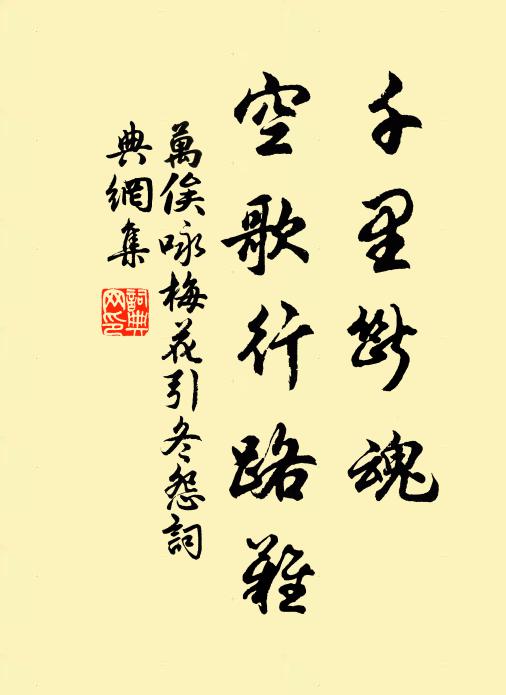 千里斷魂
空歌行路難
萬俟咏梅花引冬怨詞
典網集
詞典
网印